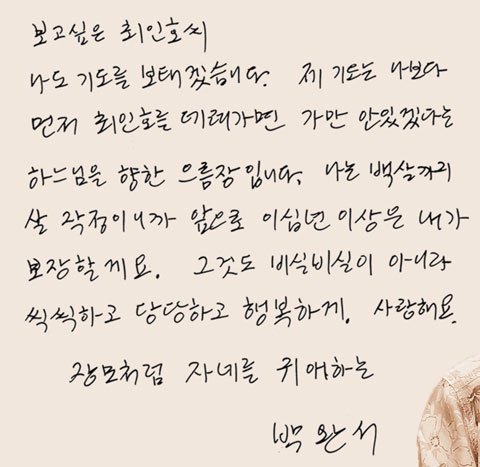 보고싶은 최인호씨
나도 기도를 보태겠습니다. 제 기도는 나보다
먼저 최인호를 데려가면 가만 안있겠다는
하느님을 향한 으름장입니다. 나는 백살까지
살 작정이니까 앞으로 이십년 이상은 내가
보장할게요. 그것도 비실비실이 아니라
씩씩하고 당당하고 행복하게. 사랑해요.
장모처럼 자네를 귀애하는
박완서